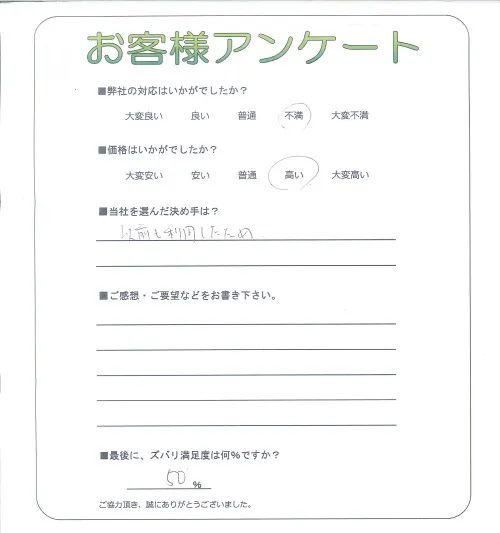 お客様アンケート
■弊社の対応はいかがでしたか？
大変良い 良い 普通 不満 大変不満
■価格はいかがでしたか？
大変安い 安い 普通 高い 大変高い
■当社を選んだ決め手は？
以前も利用したため
■ご感想・ご要望などをお書き下さい。
■最後に、ズバリ満足度は何%ですか？
50 %
ご協力頂き、誠にありがとうございました。